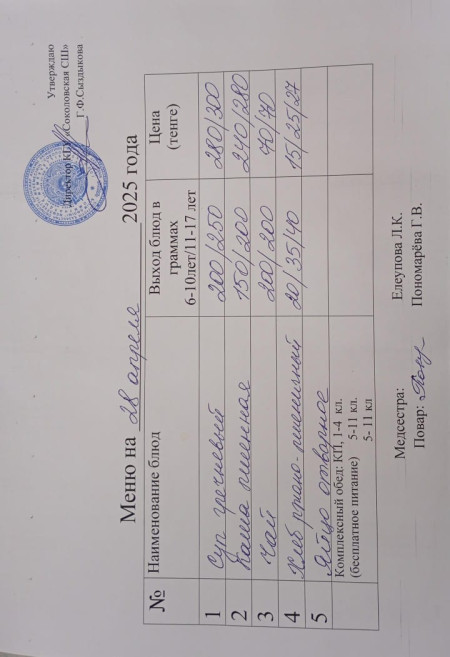 Утверждаю
Директор КГУ «Соколовская СШ»
Г.Ф.Сыздыкова
Меню на 28 апреля 2025 года
№ Наименование блюд Выход блюд в граммах 6-10лет/11-17 лет Цена (тенге)
1 Суп гречневый 200/250 280/300
2 Каша пшенная 150/200 240/280
3 Чай 200/200 70/70
4 Хлеб ржано-пшеничный 20/35/40 15/25/27
5 Яйцо отварное
Комплексный обед: КП, 1-4 кл.
(бесплатное питание) 5-11 кл.
5- 11 кл
Медсестра: Елеупова Л.К.
Повар: Пономарёва Г.В.